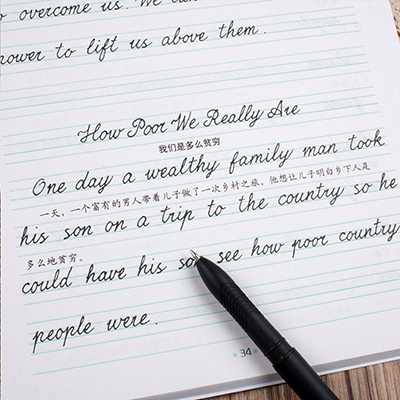 to overcome us. We can
power to lift us above them.
How Poor We Really Are
我们是多么贫穷
One day a wealthy family man took
一天，一个富有的男人带着儿子做了一次乡村之旅，他想让儿子明白乡下人是
his son on a trip to the country so he
多么地贫穷。
could have his son see how poor country
people were.
34